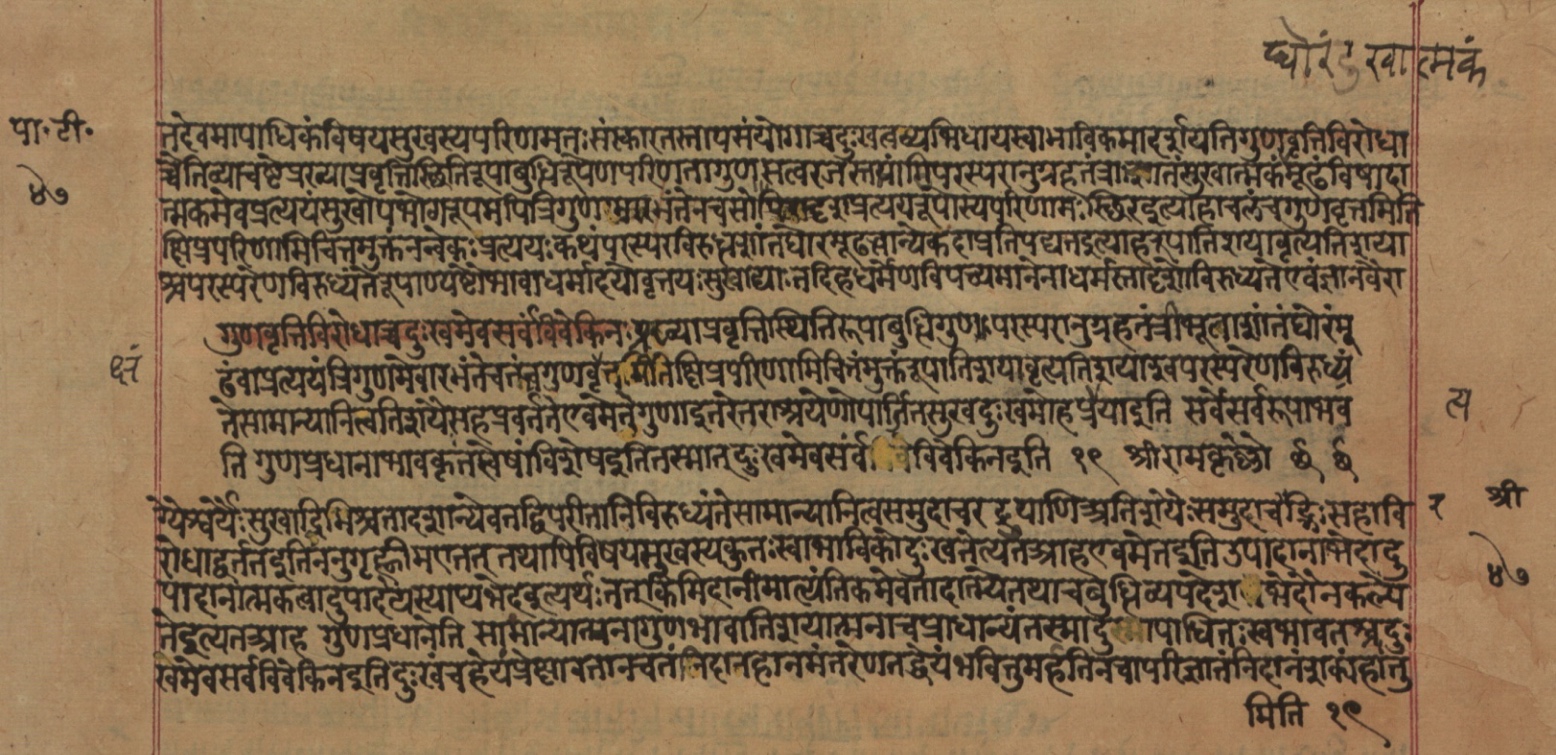 घोरंदुखात्मकं
पा॰ टी॰
४७
तदेवमौपाधिकंविषयसुखस्यपरिणमतः संस्कारतस्तापसंयोगाच्चदुःखत्वव्यभिधायस्वाभाविकमादर्शयतिगुणवृत्तिविरोधा
च्चेतिव्याचष्टेप्रख्याप्रवृत्तिस्थितिरूपाबुधिरूपेणपरिणतागुणसत्वरजस्तमांसिपरस्परानुग्रहतंत्राः सुखात्मकंमूढंविषादा
त्मकमेवप्रत्ययंसुखोपभोगरूपमपित्रिगुणमारभंतेनच प्रत्ययरूपोस्यपरिणामःस्थिरइत्याहाचलंचगुणवृत्तमिति
क्षिप्रपरिणामिचित्तमुक्तंनन्वेकःप्रत्ययःकथंपरस्परविरुद्धशांतघोरमूढत्वान्येकदाप्रतिपद्यतइत्याहरूपातिशयावृत्यतिशया
श्चपरस्परेणविरुध्यंतेरूपाण्यष्टौभावाधर्मादयोवृत्तयःसुखाद्याःतदिहधर्मेणविपच्यमानेनाधर्मस्तादृशोविरुध्यतेएवंज्ञानवैरा
गुणवृत्तिविरोधाच्चदुःखमेवसर्वंविवेकिनः प्रख्याप्रवृत्तिस्थितिरूपाबुधिगुणाःपरस्परानुग्रहतंत्रीभूत्वाशांतंघोरंमू
ढंवाप्रत्ययंत्रिगुणमेवारभंतेचलंचगुणवृत्तमितिक्षिप्रपरिणामिचित्तंमुक्तंरूपातिशयावृत्यतिशयाश्चपरस्परेणविरुध्यं
तेसामान्यानित्वतिशयैःसहप्रवर्तंतेएवमेतेगुणाइतरेतराश्रयेणोपार्जितसुखदुःखमोहप्रत्ययाइति सर्वेसर्वरूपाभव
त्य
ति गुणप्रधानाभावकृतस्त्वेषांविशेषइतितस्मात्दुःखमेवसर्वं विवेकिनइति १९ श्रीरामकृष्णो छ छ
ग्येश्वर्यैःसुखादिभिश्चतादृशान्येवतद्विपरीतानिविरुध्यंतेसामान्यानित्वसमुदाचरद्रूपाणिअतिशयैःसमुदाचरद्भिःसहावि
श्री
रोधाद्वर्तंतइतिननुगृह्णीमएतत् तथापिविषयसुखस्यकुतःस्वाभाविकीदुःखतेत्यतआहएवमेतइतिउपादानाभेदादु
४७
पादानात्मकत्वादुपादेयस्याप्यभेदइत्यर्थःतत्किमिदानीमात्यंतिकमेवतादात्म्यंतथाचबुधिव्यपदेश भेदौनकल्पे
तेइत्यतआह गुणप्रधानेति सामान्यात्मनागुणभावोतिशयात्मनाचप्राधान्यंतस्मादु पाधितःस्वभावतश्चदुः
खमेवसर्वंविवेकिनइतिदुःखंचहेयंप्रेक्षावतानचतंनिदानहानमंतरेणतद्धेयंभवितुमर्हतिनचापरिज्ञातंनिदानंशक्यंहातु
मिति १९